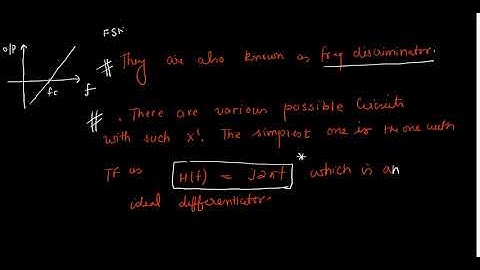 FSK
o/p
fc
f
# They are also known as freq discriminator.
# . There are various possible Circuits
with such xʳ. The simplest one is the one with
TF as H(f) = J2πf * which is an
ideal differentiator.